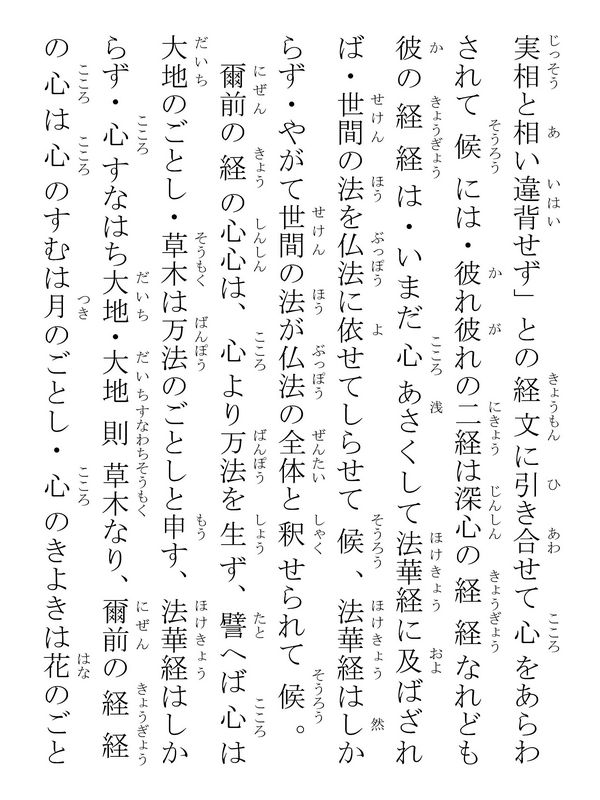 実相と相い違背せず」との経文に引き合せて心をあらわ
されて候には・彼れ彼れの二経は深心の経経なれども
彼の経経は・いまだ心あさくして法華経に及ばざれ
ば・世間の法を仏法に依せてしらせて候、法華経はしか
らず・やがて世間の法が仏法の全体と釈せられて候。
爾前の経の心心は、心より万法を生ず、譬へば心は
大地のごとし・草木は万法のごとしと申す、法華経はしか
らず・心すなはち大地・大地則草木なり、爾前の経経
の心は心のすむは月のごとし・心のきよきは花のごと